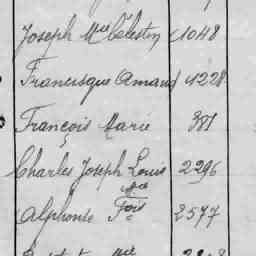 Joseph Mie Célestin 1048
Francisque Amand 1228
François Marie 381
Charles Joseph Louis 2296
Mce
Alphonse Fois 2577